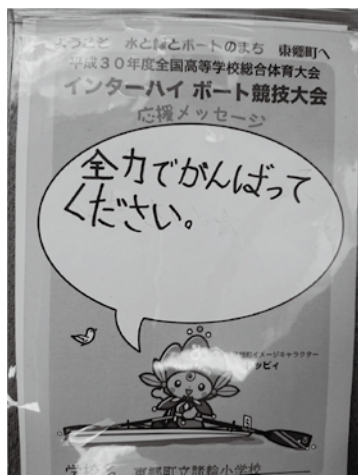 ようこそ 水と緑とボートのまち 東郷町へ
平成30年度全国高等学校総合体育大会
インターハイ ボート競技大会
応援メッセージ
全力でがんばって
ください。
イメージキャラクター
ッピィ
学校名 東郷町立諸輪小学校